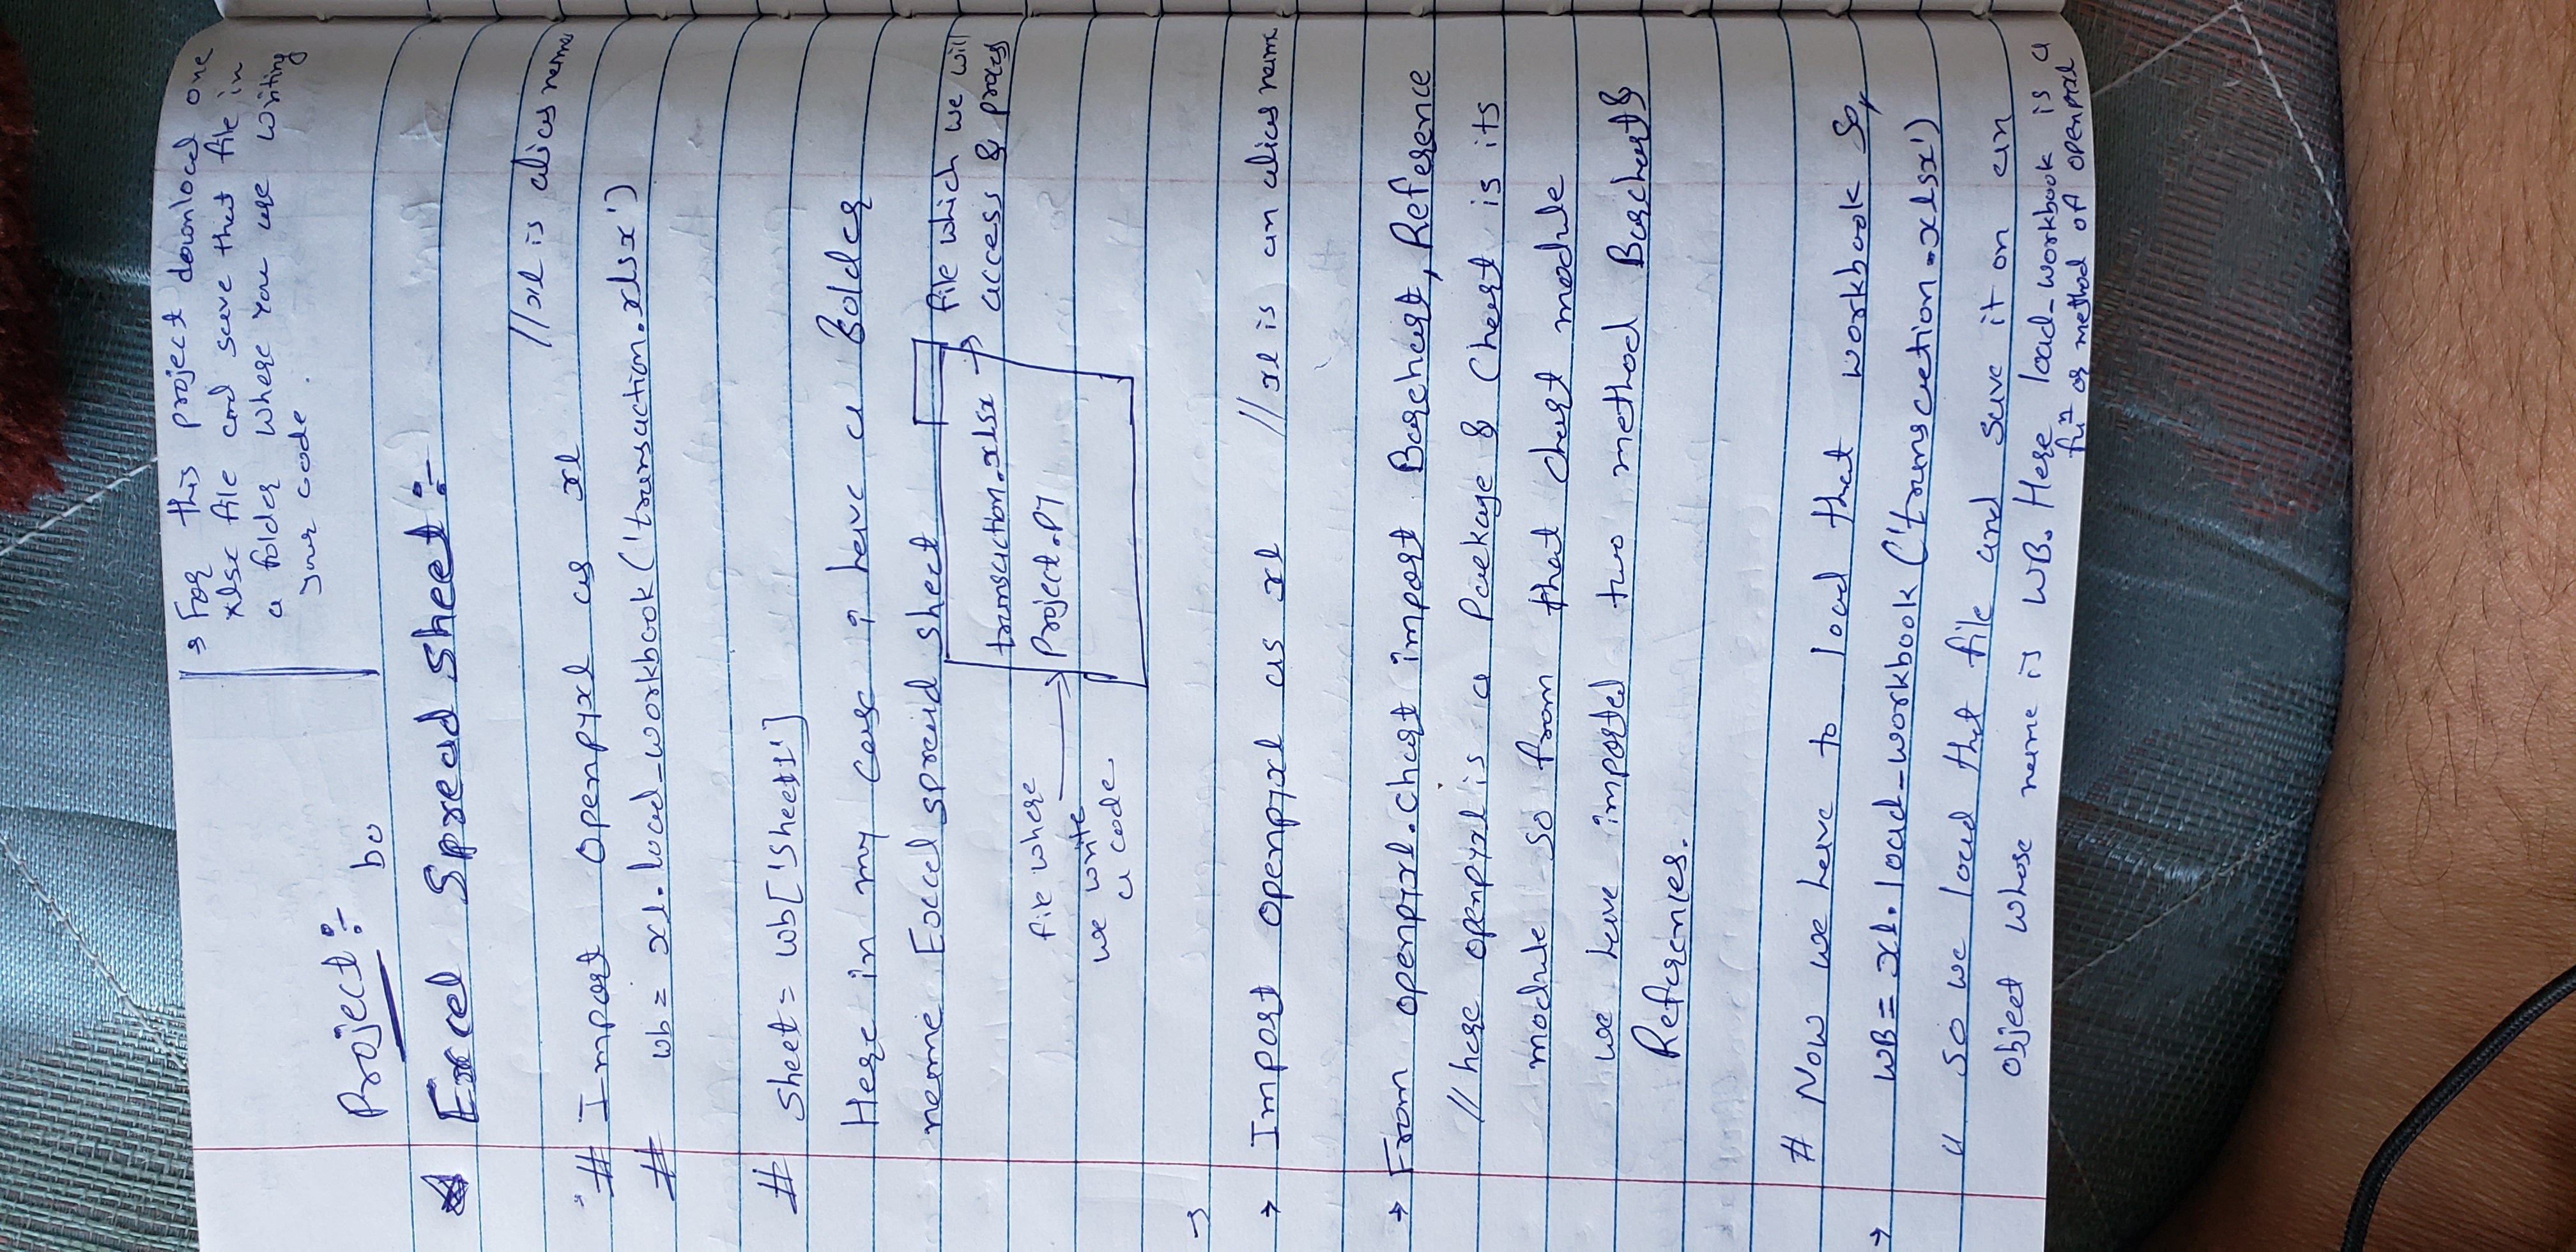 → For this project download one
xlsx file and save that file in
a folder where you are writing
your code.
Project :-
bo
Excel Spread sheet :-
//xl is alias name
# Import openpyxl as xl
# wb = xl.load_workbook('transaction.xlsx')
# sheet = wb['Sheet1']
Here in my case i have a folder
name Excel spread sheet
file which we will
access & process
transaction.xlsx →
Project.py
file where
we write
a code
→
→ Import openpyxl as xl //xl is an alias name
→ From openpyxl.chart import Barchart, Reference
// here openpyxl is a Package & Chart is its
module so from that chart module
we have imported two method Barchart &
References.
# Now we have to load that workbook so,
→ WB = xl.load_workbook('transaction.xlsx')
// so we load that file and save it on an
object whose name is WB. Here load_workbook is a
fuⁿ or method of openpyxl